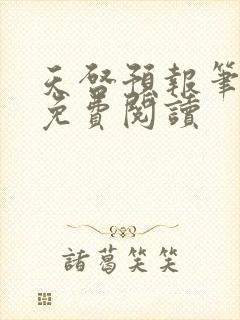 天啓預報筆
免費閱讀
諸葛笑笑